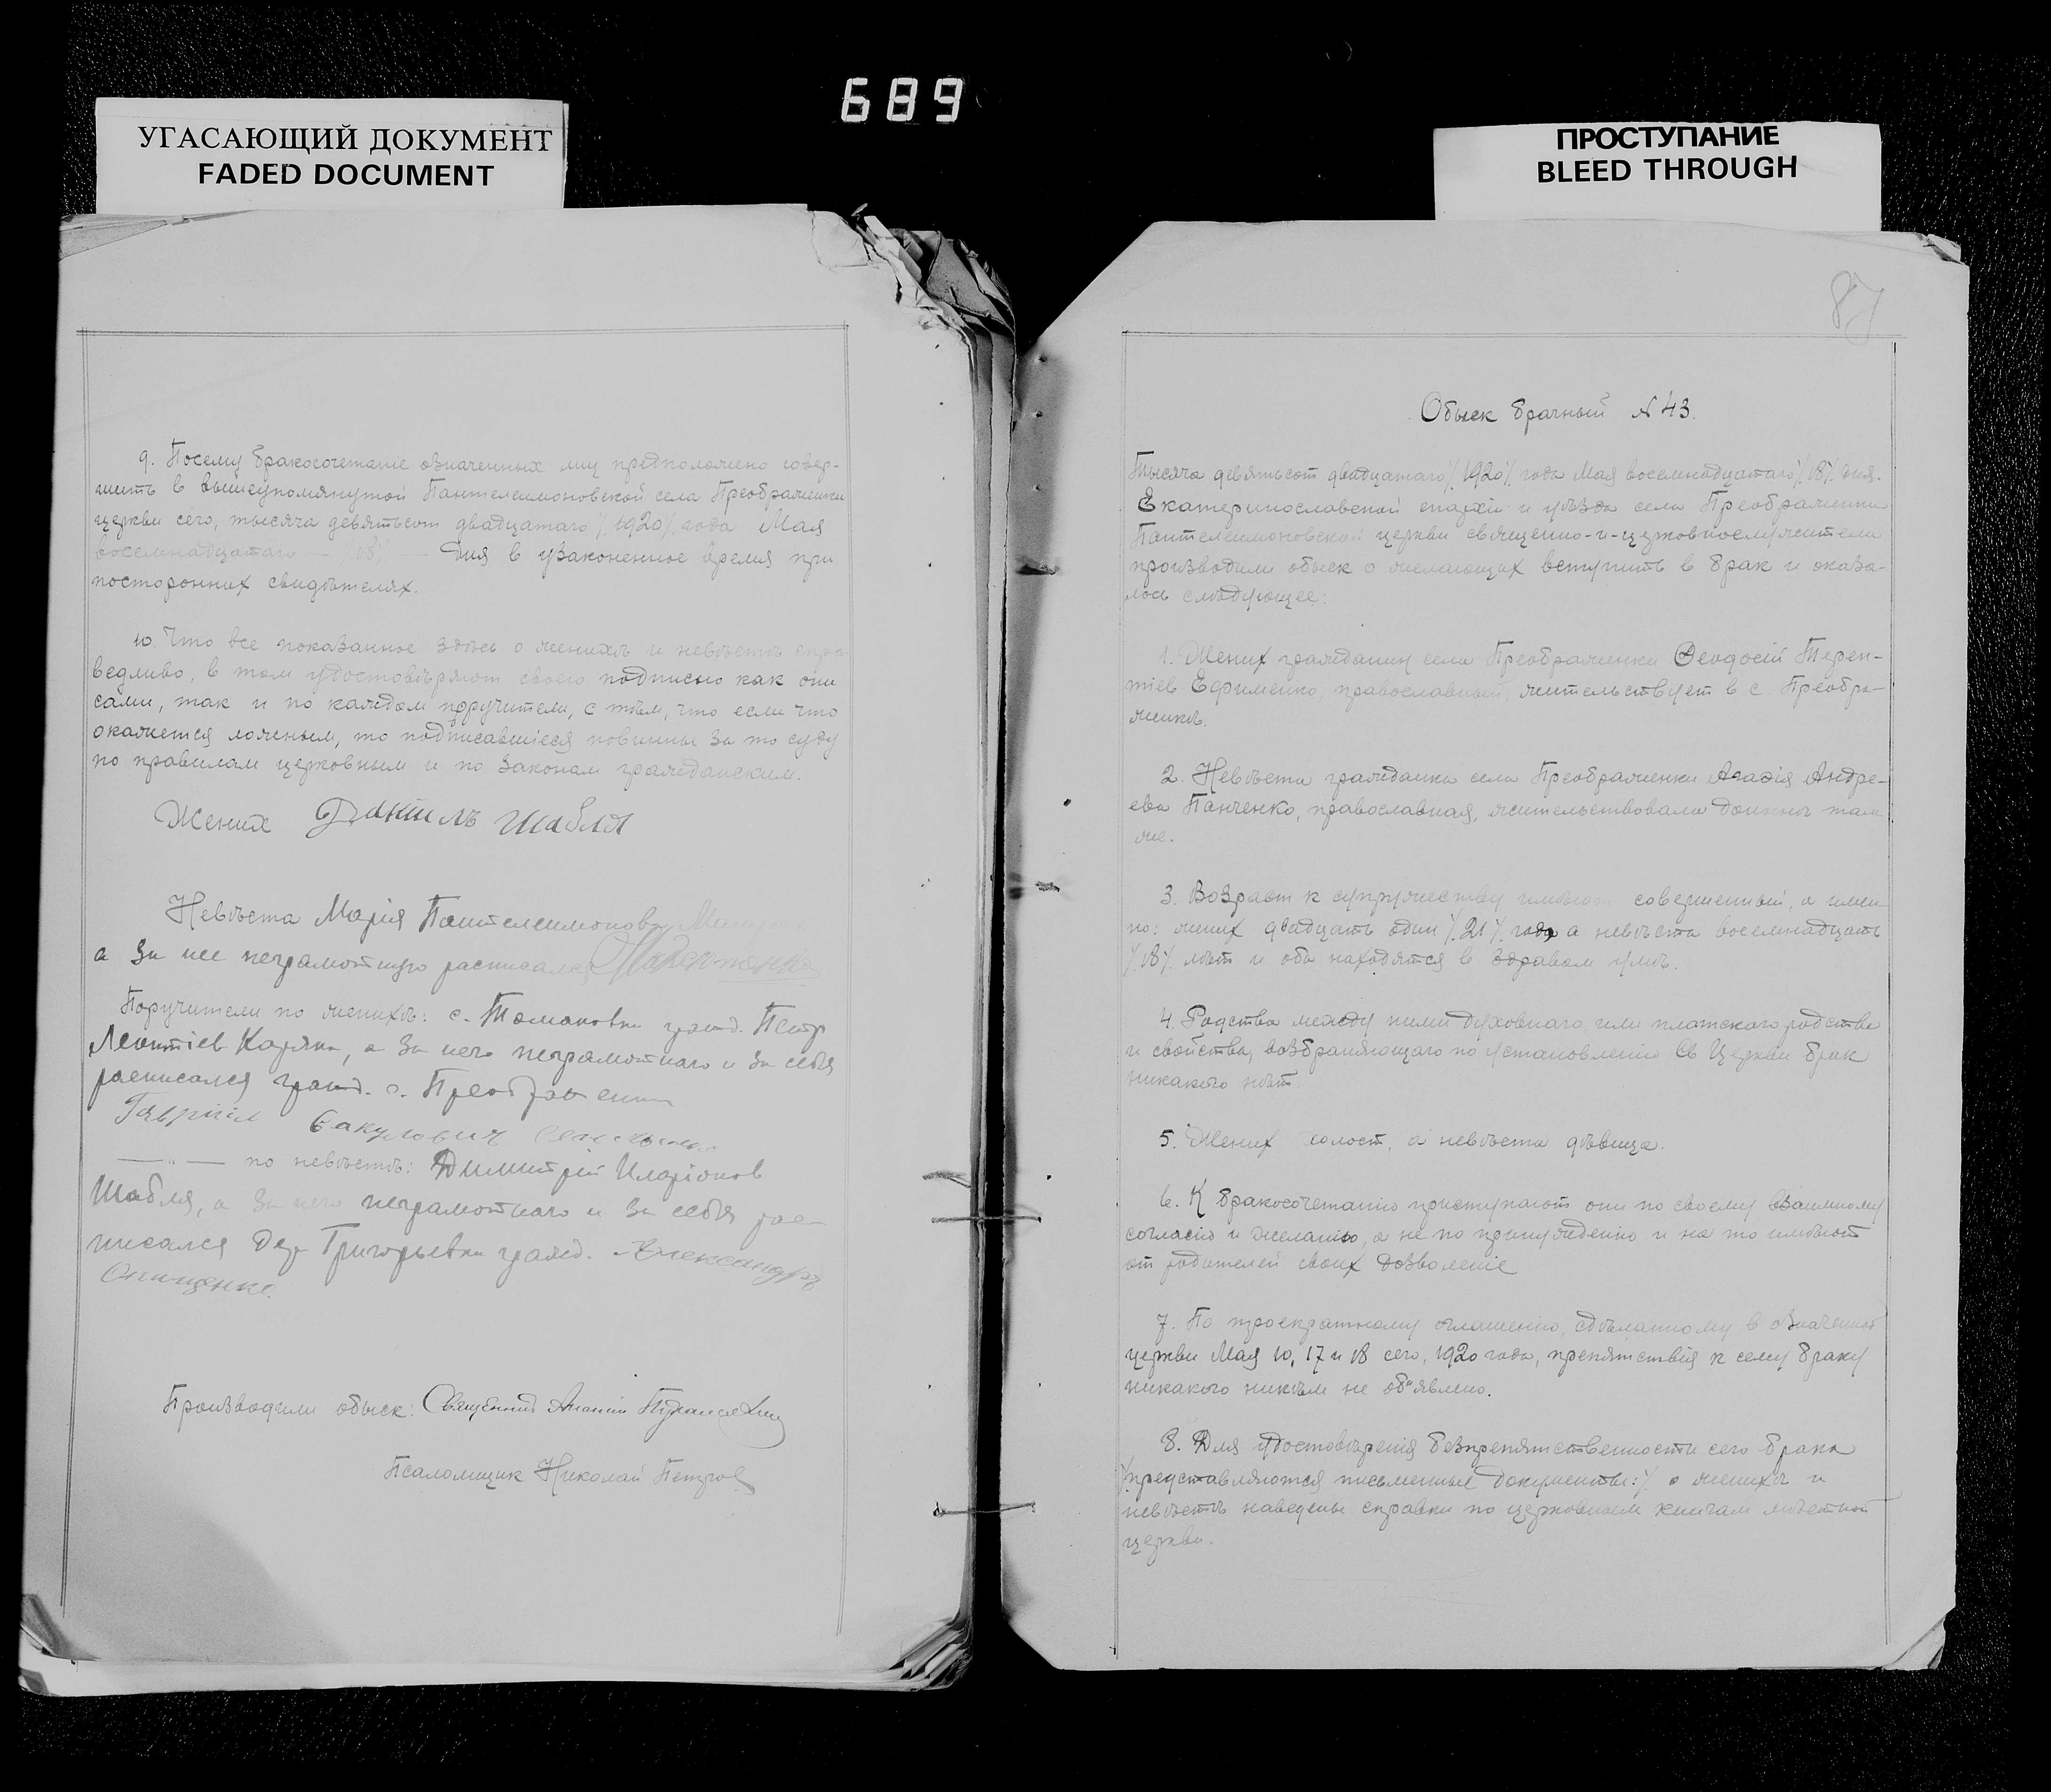 689
УГАСАЮЩИЙ ДОКУМЕНТ
FADED DOCUMENT
9. Посему бракосочетаніе означенных лиц предположено совер-
шить в вышеупомянутой Пантелеимоновской села Преображенки
церкви сего, тысяча девятьсот двадцатаго /.1920/. года Мая
восемнадцатаго — /.18/. — Дня в узаконенное время при
посторонних свидѣтелях.
10. Что все показанное здѣсь о женихѣ и невѣстѣ спра-
ведливо, в том удостовѣряют своею подписью как они
сами, так и по каждом поручители, с тѣм, что если что
окажется ложным, то подписавшіеся повинны за то суду
по правилам церковным и по законам гражданским.
Жених Даніилъ Шабля
Невѣста Марія Пантелеимонова
а за нее неграмотную расписался
Поручители по женихѣ: с. Томаковки гражд. Петр
Леонтіев Коряка, а за него неграмотного и за себя
расписался гражд. с. Преображенки
Гавріил
— " — по невѣстѣ: Димитрій Иларіонов
Шабля, а за него неграмотнаго и за себя рас-
писался дер. Григорьевки гражд. Александръ
Онищенко.
Производили обыск: Священник Ананій
Псаломщик Николай Петров
ПРОСТУПАНИЕ
BLEED THROUGH
87
Обыск брачный N 43.
Тысяча девятьсот двадцатаго /.1920/. года Мая восемнадцатаго /.18/. дня.
Екатеринославской епархіи и уѣзда села Преображенки
Пантелеимоновской церкви священно-и-церковнослужители
производили обыск о желающих вступить в брак и оказа-
лось слѣдующее:
1. Жених гражданин села Преображенки Ѳеодосій Терен-
тіев Ефименко, православный, жительствует в с. Преобра-
женкѣ.
2. Невѣста гражданка села Преображенки Агафія Андре-
ева Панченко, православная, жительствовала донынѣ там
же.
3. Возраст к супружеству имѣют совершенный, а имен-
но: жених двадцать один /.21/. год, а невѣста восемнадцать
/.18/. лѣт и оба находятся в здравом умѣ.
4. Родства между ними духовнаго, или плотского родства
и свойства, возбраняющаго по установленію Св. Церкви брак
никакого нѣт.
5. Жених холост, а невѣста дѣвица.
6. К бракосочетанію приступают они по своему взаимному
согласію и желанію, а не по принужденію и на то имѣют
от родителей своих дозволеніе
7. По троекратному оглашенію, сдѣланному в означенной
церкви Мая 10, 17 и 18 сего, 1920 года, препятствія к сему браку
никакого никѣм не об"явлено.
8. Для удостовѣренія безпрепятственности сего брака
/.представляются письменные документы:/. о женихѣ и
невѣстѣ наведены справки по церковным книгам мѣстной
церкви.